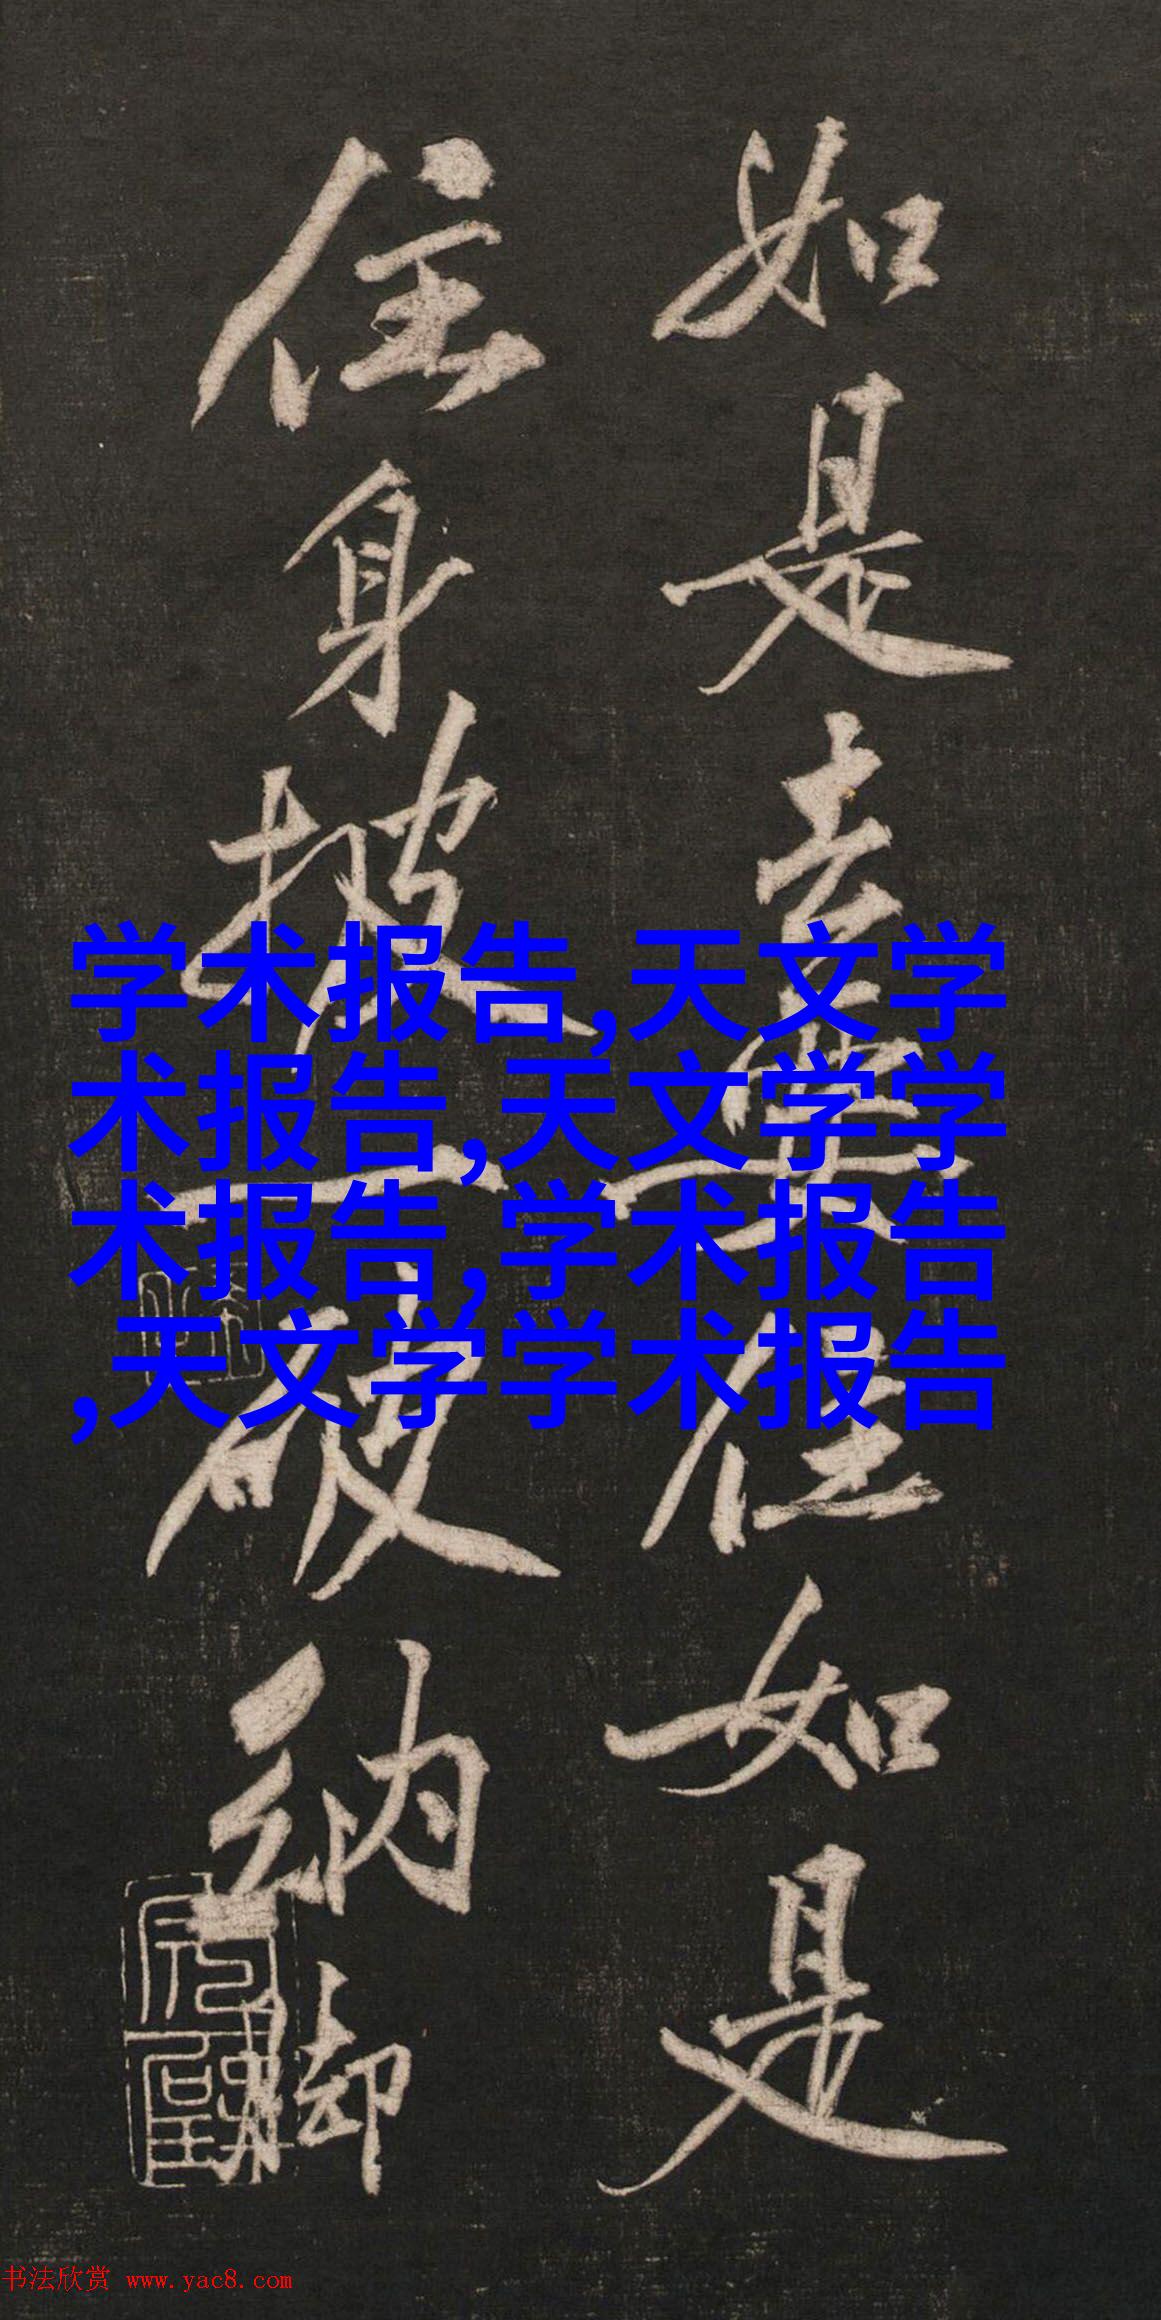 如是去住如是
住身披一破納脚
学术报告,天文学
术报告,天文学学
术报告,学术报告
,天文学学术报告
书法欣赏 www.yac8.com